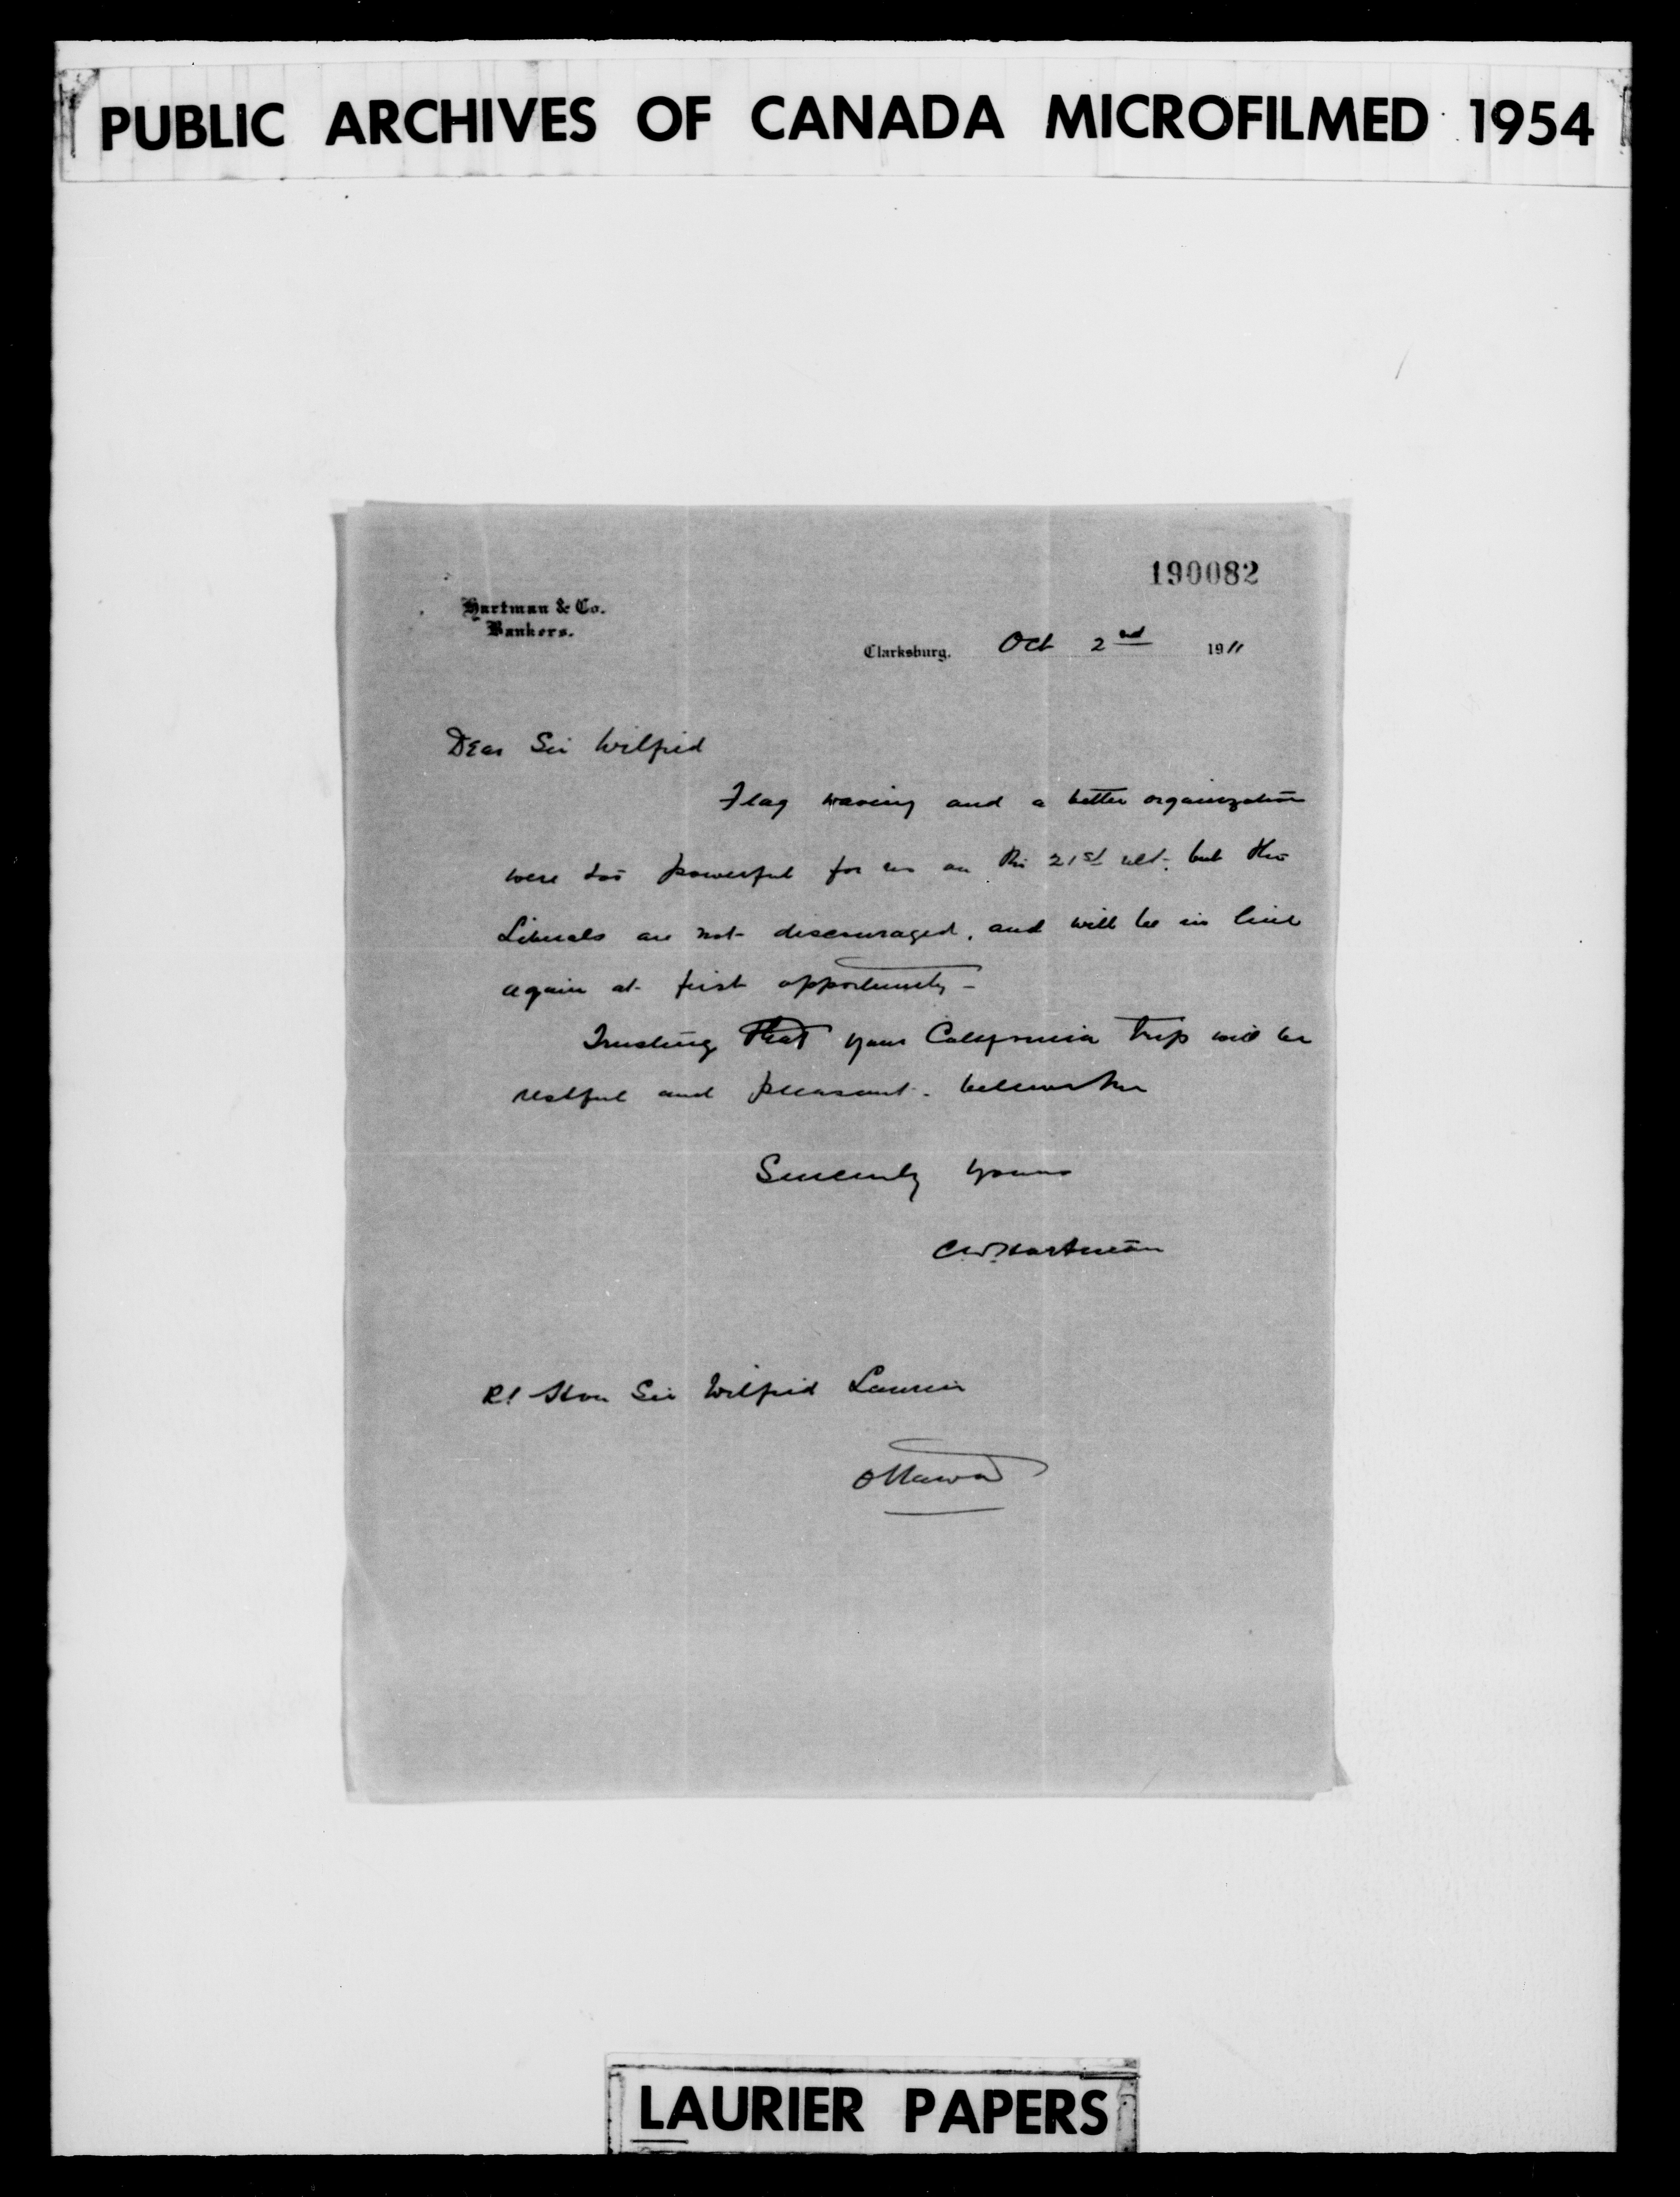 PUBLIC ARCHIVES OF CANADA MICROFILMED 1954
190082
Hartman & Co.
Bankers.
Clarksburg, Oct 2nd 1911
Dear Sir Wilfrid
Flag waving and a better organization
were too powerful for us on the 21st ult. but the
Liberals are not discouraged, and will be in line
again at first opportunity -
Trusting that your California trip will be
restful and pleasant. believe me
Sincerely yours
C.W. Hartman
Rt Hon Sir Wilfrid Laurier
Ottawa
LAURIER PAPERS